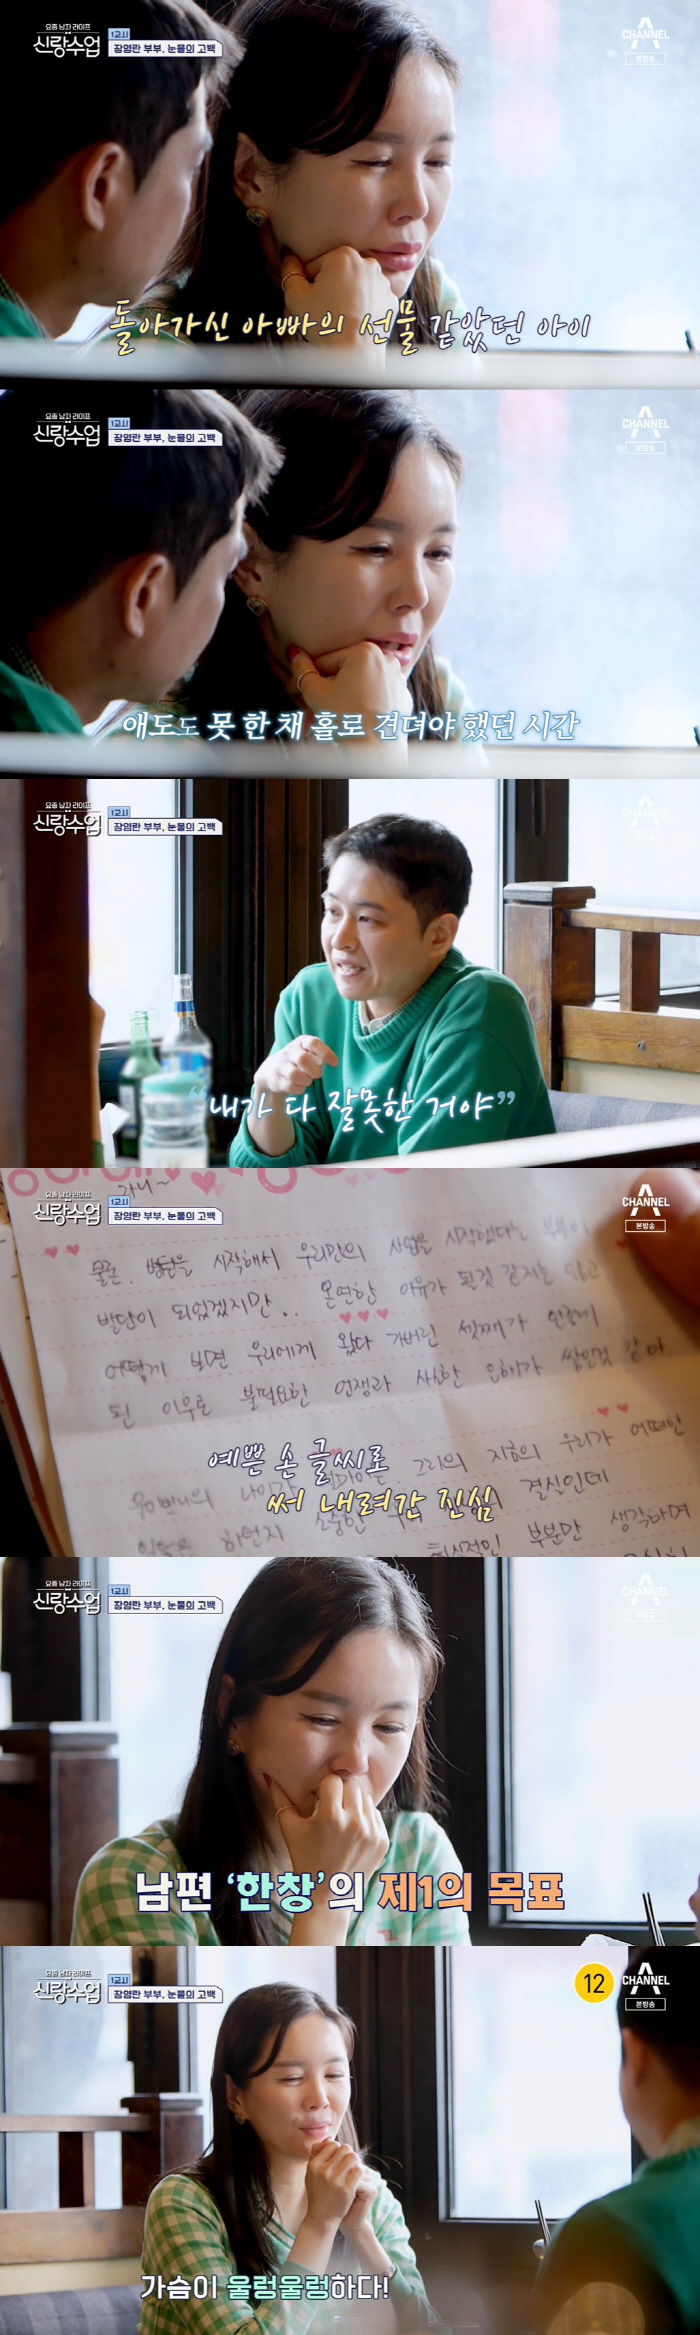 요즘 남자 라이프
신랑수업
1교시
장영란 부부, 눈물의 고백
CHANNEL A
본방송
돌아가신 아빠의 선물 같았던 아이
요즘 남자 라이프
신랑수업
1교시
장영란 부부, 눈물의 고백
CHANNEL A
본방송
애도도 못 한 채 홀로 견뎌야 했던 시간
요즘 남자 라이프
신랑수업
1교시
장영란 부부, 눈물의 고백
“내가 다 잘못한 거야”
요즘 남자 라이프
신랑수업
1교시
장영란 부부, 눈물의 고백
CHANNEL A
본방송
라니~
물론, 병원을 시작해서 우리만의 사업을 시작했다는 부분이
발단이 되었겠지만.. 온연한 이유가 될것 같지는 않고
어떻게 보면 우리에게 왔다 가버린 셋째가 안좋게
된 이후로 불필요한 언쟁과 사소한 오해가 쌓인것 같아
그리의 지효의 우리가 어떠한
결실인데
부분만 생각하며
예쁜 손 글씨로
써 내려간 진심
요즘 남자 라이프
신랑수업
1교시
장영란 부부, 눈물의 고백
CHANNEL A
본방송
남편 ‘한창’의 제1의 목표
요즘 남자 라이프
신랑수업
1교시
장영란 부부, 눈물의 고백
12
CHANNEL A
본방송
가슴이 울렁울렁하다!